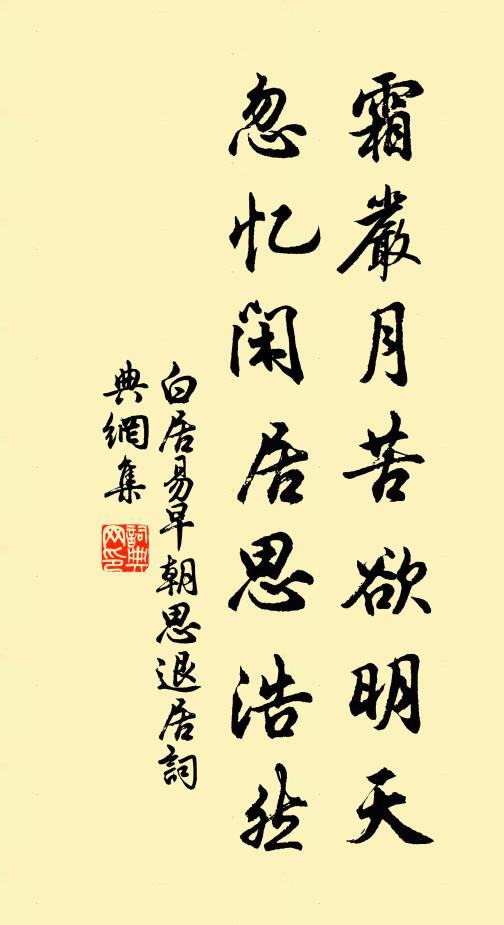 霜嚴月苦欲明天
忽忆闲居思浩然
白居易早朝思退居詞
典網集
詞典網印